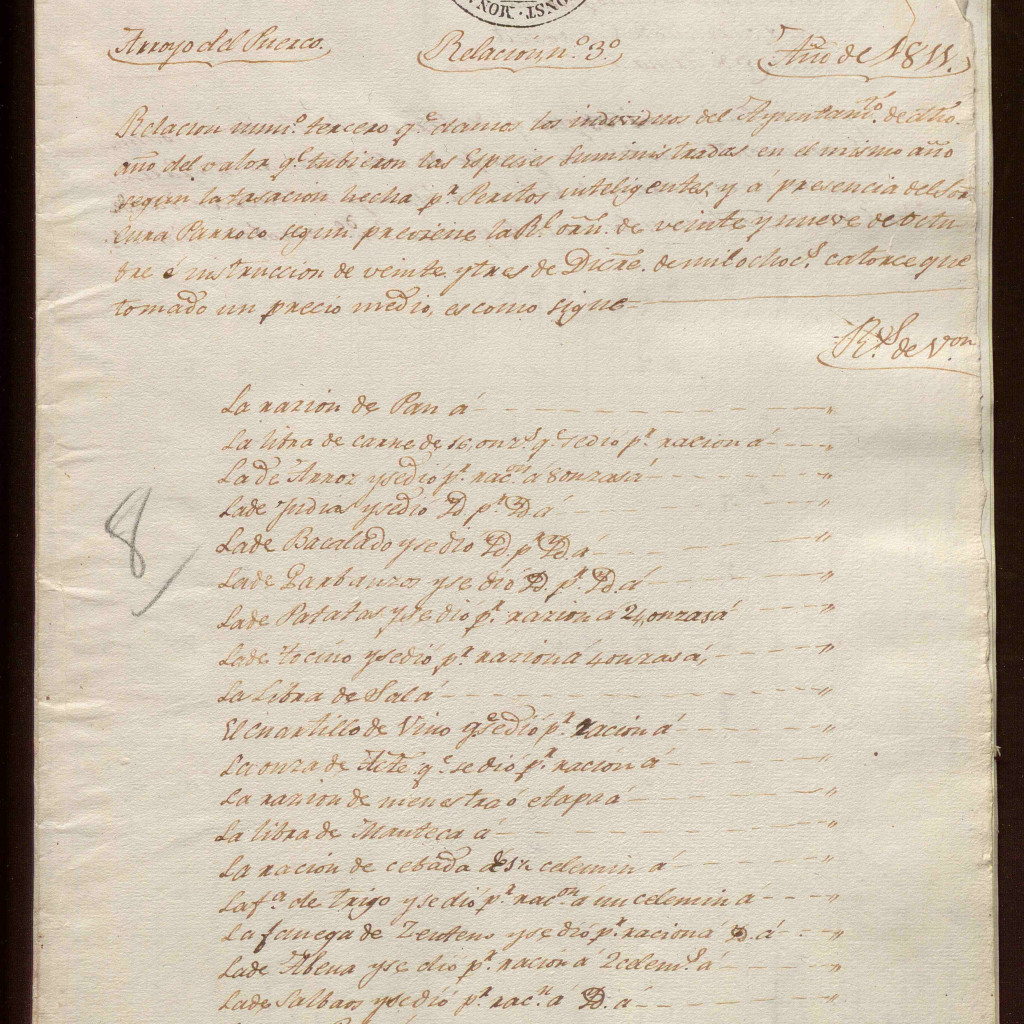 CONST. MON
Arroyo del Puerco.
Relacion, n.º 3.º
Año de 1811.
Relacion num.º tercero q.e damos los individuos del Ayuntam.to de dho.
año del valor q.e tubieron las Especies suministradas en el mismo año
segun la tasacion hecha p.r Peritos inteligentes, y á presencia del Sor
Cura Parroco segun previene la R.l orñ. de veinte y nueve de Octu-
bre é instruccion de veinte y tres de Dicre. de mil ochoc.s catorce que
tomado un precio medio, es como sigue
R.s de V.on
La razion de Pan á
La libra de carne de 16, onz.s q.e se dió p.r racion á
La de Arroz y se dió p.r rac.on a 8 onzas á
La de Judias y se dió Yd. p.r Yd. á
La de Bacalado y se dio Yd. p.r Yd. á
La de Garbanzos y se dió Yd. p.r Yd. á
La de Patatas y se dio p.r razion a 24, onzas á
La de tocino y se dió p.r razion á 4 onzas á,
La Libra de Sal á
El cuartillo de Vino q.e se dió p.r racion á
La onza de Acte. q.e se dió p.r ración á
La razion de menestra ó etapa á
La libra de Manteca á
La ración de cebada de celemin á
La f.a de trigo y se dió p.r rac.on á un celemin á
La fanega de Zenteno y se dió p.r racion á Yd. á
La de Abena y se dio p.r racion á 2 celem.s á
La de Salbaos y se dió p.r rac.n á Yd. á
8